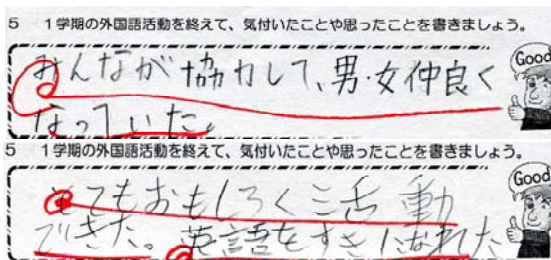 5 1学期の外国語活動を終えて、気付いたことや思ったことを書きましょう。
みんなが協力して、男・女仲良く
なっていた。
Good
5 1学期の外国語活動を終えて、気付いたことや思ったことを書きましょう。
とてもおもしろく三舌動
できた。英語をすきになれた
Good